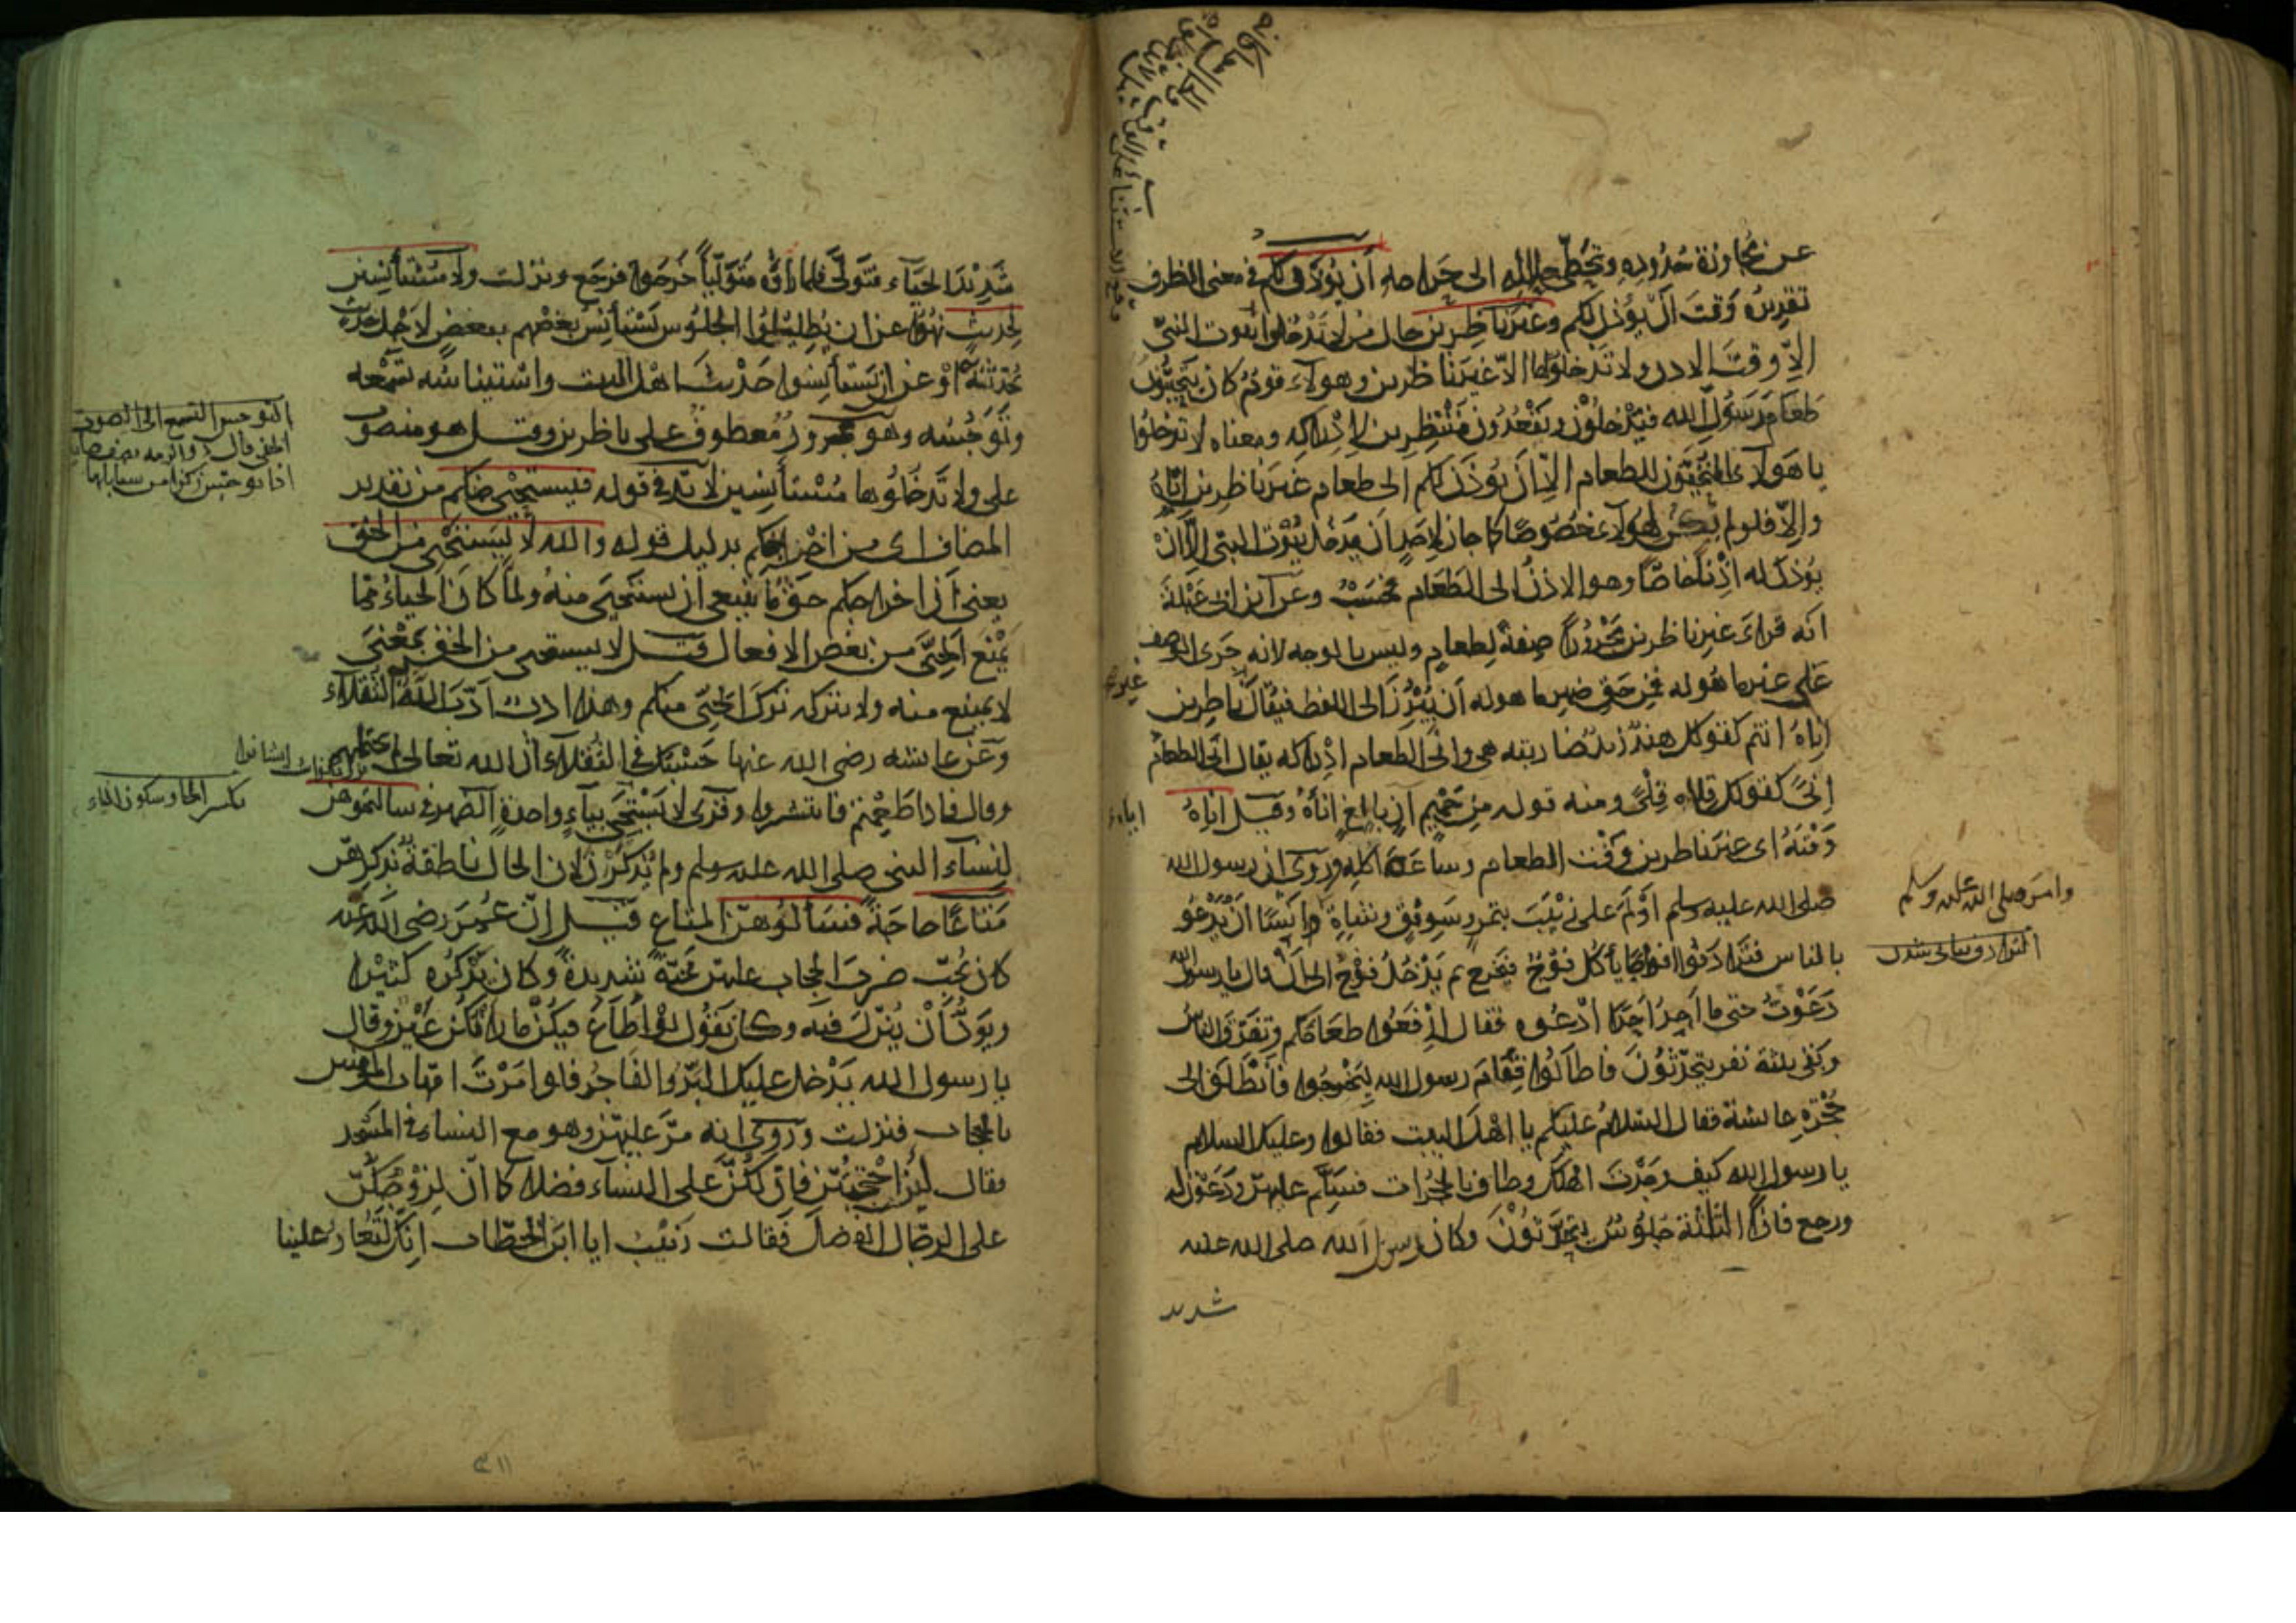 عن مجاوزة حدوده وتخطى حلاله الى حرامه أن يؤذن لكم في معنى الظرف
تقديره وقت أن يؤذن لكم وغير ناظرين حال من لا تدخلوا بيوت النبي
الا وقت الاذن ولا تدخلوها الا غير ناظرين وهولآء قوم كان يتحينون
طعام رسول الله فيدخلون ويقعدون منتظرين لادراكه ومعناه لا تدخلوا
يا هولاء المتحينون للطعام الا أن يؤذن لكم الى طعام غير ناظرين إناه
والا فلو لم يكن لهولاء خصوصا لما جاز لاحد أن يدخل بيوت النبي الا أن
يؤذن له اذنا خاصا وهو الاذن الى الطعام فحسب وعن ابن ابى عبلة
انه قراء غير ناظرين مجرورا صفة لطعام وليس بالوجه لانه جرى الوصف
على غير ما هو له فمن حق ضمير ما هو له أن يبرز الى اللفظ فيقال ناظرين
إناه انتم كقولك هند زيد ضاربته هي وانى الطعام ادراكه يقال انى الطعام
إنى كقولك قلاه قلى ومنه قوله من حميم ان بالغ اناه وقيل اناه
وقته اى غير ناظرين وقت الطعام وساعة اكله وروى ان رسول الله
صلى الله عليه وسلم أولم على زينب بتمر وسويق وشاة وأمر أنسا أن يدعو
بالناس فترادفوا افواجا يأكل فوج فيخرج ثم يدخل فوج الى أن قال يا رسول الله
دعوت حتى ما أجد أحدا أدعوه فقال ارفعوا طعامكم وتفرق الناس
وبقى ثلثة نفر يتحدثون فاطالوا فقام رسول الله ليخرجوا فانطلق الى
حجرة عائشة فقال السلام عليكم يا اهل البيت فقالوا وعليك السلام
يا رسول الله كيف وجدت اهلك وطاف بالحجرات فسلم عليهن ودعون له
ورجع فاذا الثلثة جلوس يتحدثون وكان رسول الله صلى الله عليه
شديد
وامر صلى الله عليه وسلم
شديد الحيآء فتولى فلما رأوه متوليا خرجوا فرجع ونزلت ولا مستأنسين
لحديث نهوا عن ان يطيلوا الجلوس يستأنس بعضهم ببعض لاجل حديث
يحدثه به أو عن ان يستأنسوا حديث اهل البيت واستيناسه تسمعه
وتوجسه وهو مجرور معطوف على ناظرين وقيل هو منصوب
على ولا تدخلوها مستأنسين لا بد في قوله فيستحيى منكم من تقدير
المضاف اى من اخراجكم بدليل قوله والله لا يستحيى من الحق
يعنى أن اخراجكم حق ما ينبغى أن يستحيى منه ولما كان الحياء مما
يمنع الحيى من بعض الافعال قيل لا يستحيى من الحق بمعنى
لا يمتنع منه ولا يتركه ترك الحيى منكم وهذا ادب أدب الله به الثقلاء
وعن عائشه رضى الله عنها حسبك في الثقلاء أن الله تعالى لم يحتملهم
وقال فاذا طعمتم فانتشروا وقرى لا يستحى بياء واحدة الضمير في سالتموهن
لنساء النبي صلى الله عليه وسلم ولم يذكرن لان الحال ناطقة بذكرهن
متاعا حاجة فسألوهن المتاع قيل إن عمر رضى الله عنه
كان يحب ضرب الحجاب عليهن محبة شديدة وكان يذكره كثيرا
ويود أن ينزل فيه وكان يقول لو أطاع فيكن ما رأتكن عين وقال
يا رسول الله يدخل عليك البر والفاجر فلو امرت امهات المؤمنين
بالحجاب فنزلت وروى انه مر عليهن وهو مع النساء في المسجد
فقال لئن احتجبتن فإن لكن على النساء فضلا كما أن لزوجكن
على الرجال الفضل فقالت زينب ايا ابن الخطاب إنك لتغار علينا
التوجس التسمع الى الصوت
الخفى قال ذو الرمه
بكسر الحا وسكون الياء